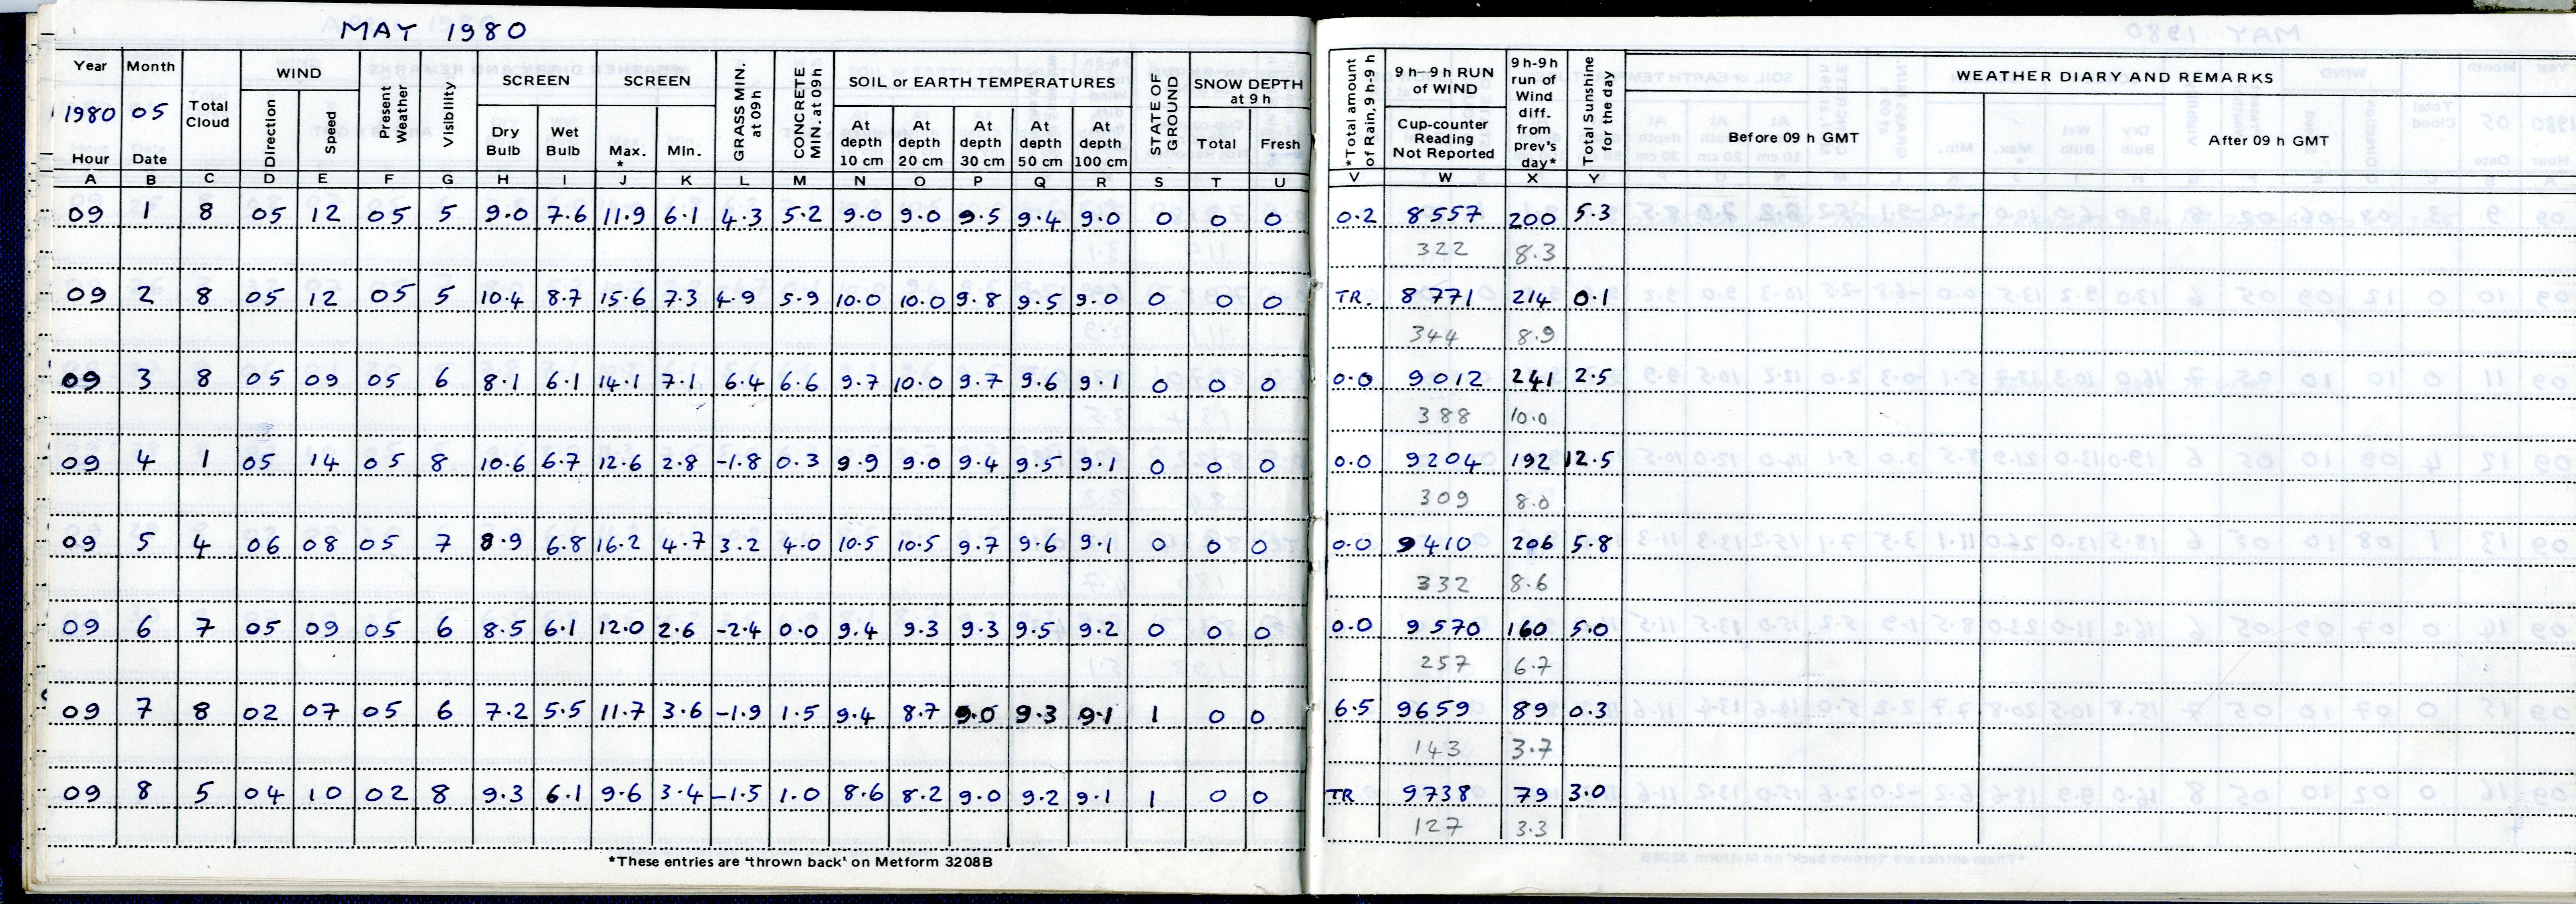 MAY 1980
Year Month Total Cloud WIND Present Weather Visibility SCREEN SCREEN GRASS MIN. at 09 h CONCRETE MIN. at 09 h SOIL or EARTH TEMPERATURES STATE OF GROUND SNOW DEPTH at 9 h *Total amount of Rain, 9 h-9 h 9 h—9 h RUN of WIND 9 h-9 h run of Wind diff. from prev's day* Total Sunshine for the day WEATHER DIARY AND REMARKS
1980 05 Direction Speed Dry Bulb Wet Bulb Max. * Min. At depth 10 cm At depth 20 cm At depth 30 cm At depth 50 cm At depth 100 cm Total Fresh Cup-counter Reading Not Reported Before 09 h GMT After 09 h GMT
Hour Date
A B C D E F G H I J K L M N O P Q R S T U V W X Y
09 1 8 05 12 05 5 9.0 7.6 11.9 6.1 4.3 5.2 9.0 9.0 9.5 9.4 9.0 0 0 0 0.2 8557 200 5.3
322 8.3
09 2 8 05 12 05 5 10.4 8.7 15.6 7.3 4.9 5.9 10.0 10.0 9.8 9.5 9.0 0 0 0 TR. 8771 214 0.1
344 8.9
09 3 8 05 09 05 6 8.1 6.1 14.1 7.1 6.4 6.6 9.7 10.0 9.7 9.6 9.1 0 0 0 0.0 9012 241 2.5
388 10.0
09 4 1 05 14 05 8 10.6 6.7 12.6 2.8 -1.8 0.3 9.9 9.0 9.4 9.5 9.1 0 0 0 0.0 9204 192 12.5
309 8.0
09 5 4 06 08 05 7 8.9 6.8 16.2 4.7 3.2 4.0 10.5 10.5 9.7 9.6 9.1 0 0 0 0.0 9410 206 5.8
332 8.6
09 6 7 05 09 05 6 8.5 6.1 12.0 2.6 -2.4 0.0 9.4 9.3 9.3 9.5 9.2 0 0 0 0.0 9570 160 5.0
257 6.7
09 7 8 02 07 05 6 7.2 5.5 11.7 3.6 -1.9 1.5 9.4 8.7 9.0 9.3 9.1 1 0 0 6.5 9659 89 0.3
143 3.7
09 8 5 04 10 02 8 9.3 6.1 9.6 3.4 -1.5 1.0 8.6 8.2 9.0 9.2 9.1 1 0 0 TR 9738 79 3.0
127 3.3
*These entries are 'thrown back' on Metform 3208B